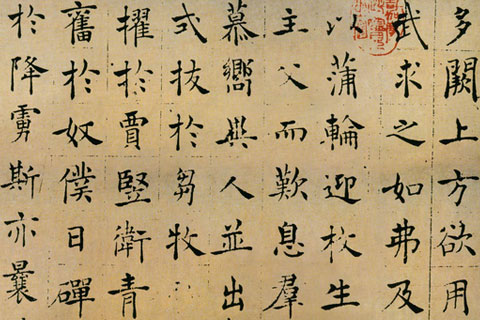 多闕上方欲用
武求之如弗及
以蒲輪迎枚生
主父而歎息羣
慕嚮異人並出
式拔於芻牧
擢於賈竪衛青
奮於奴僕日磾
於降虜斯亦曩